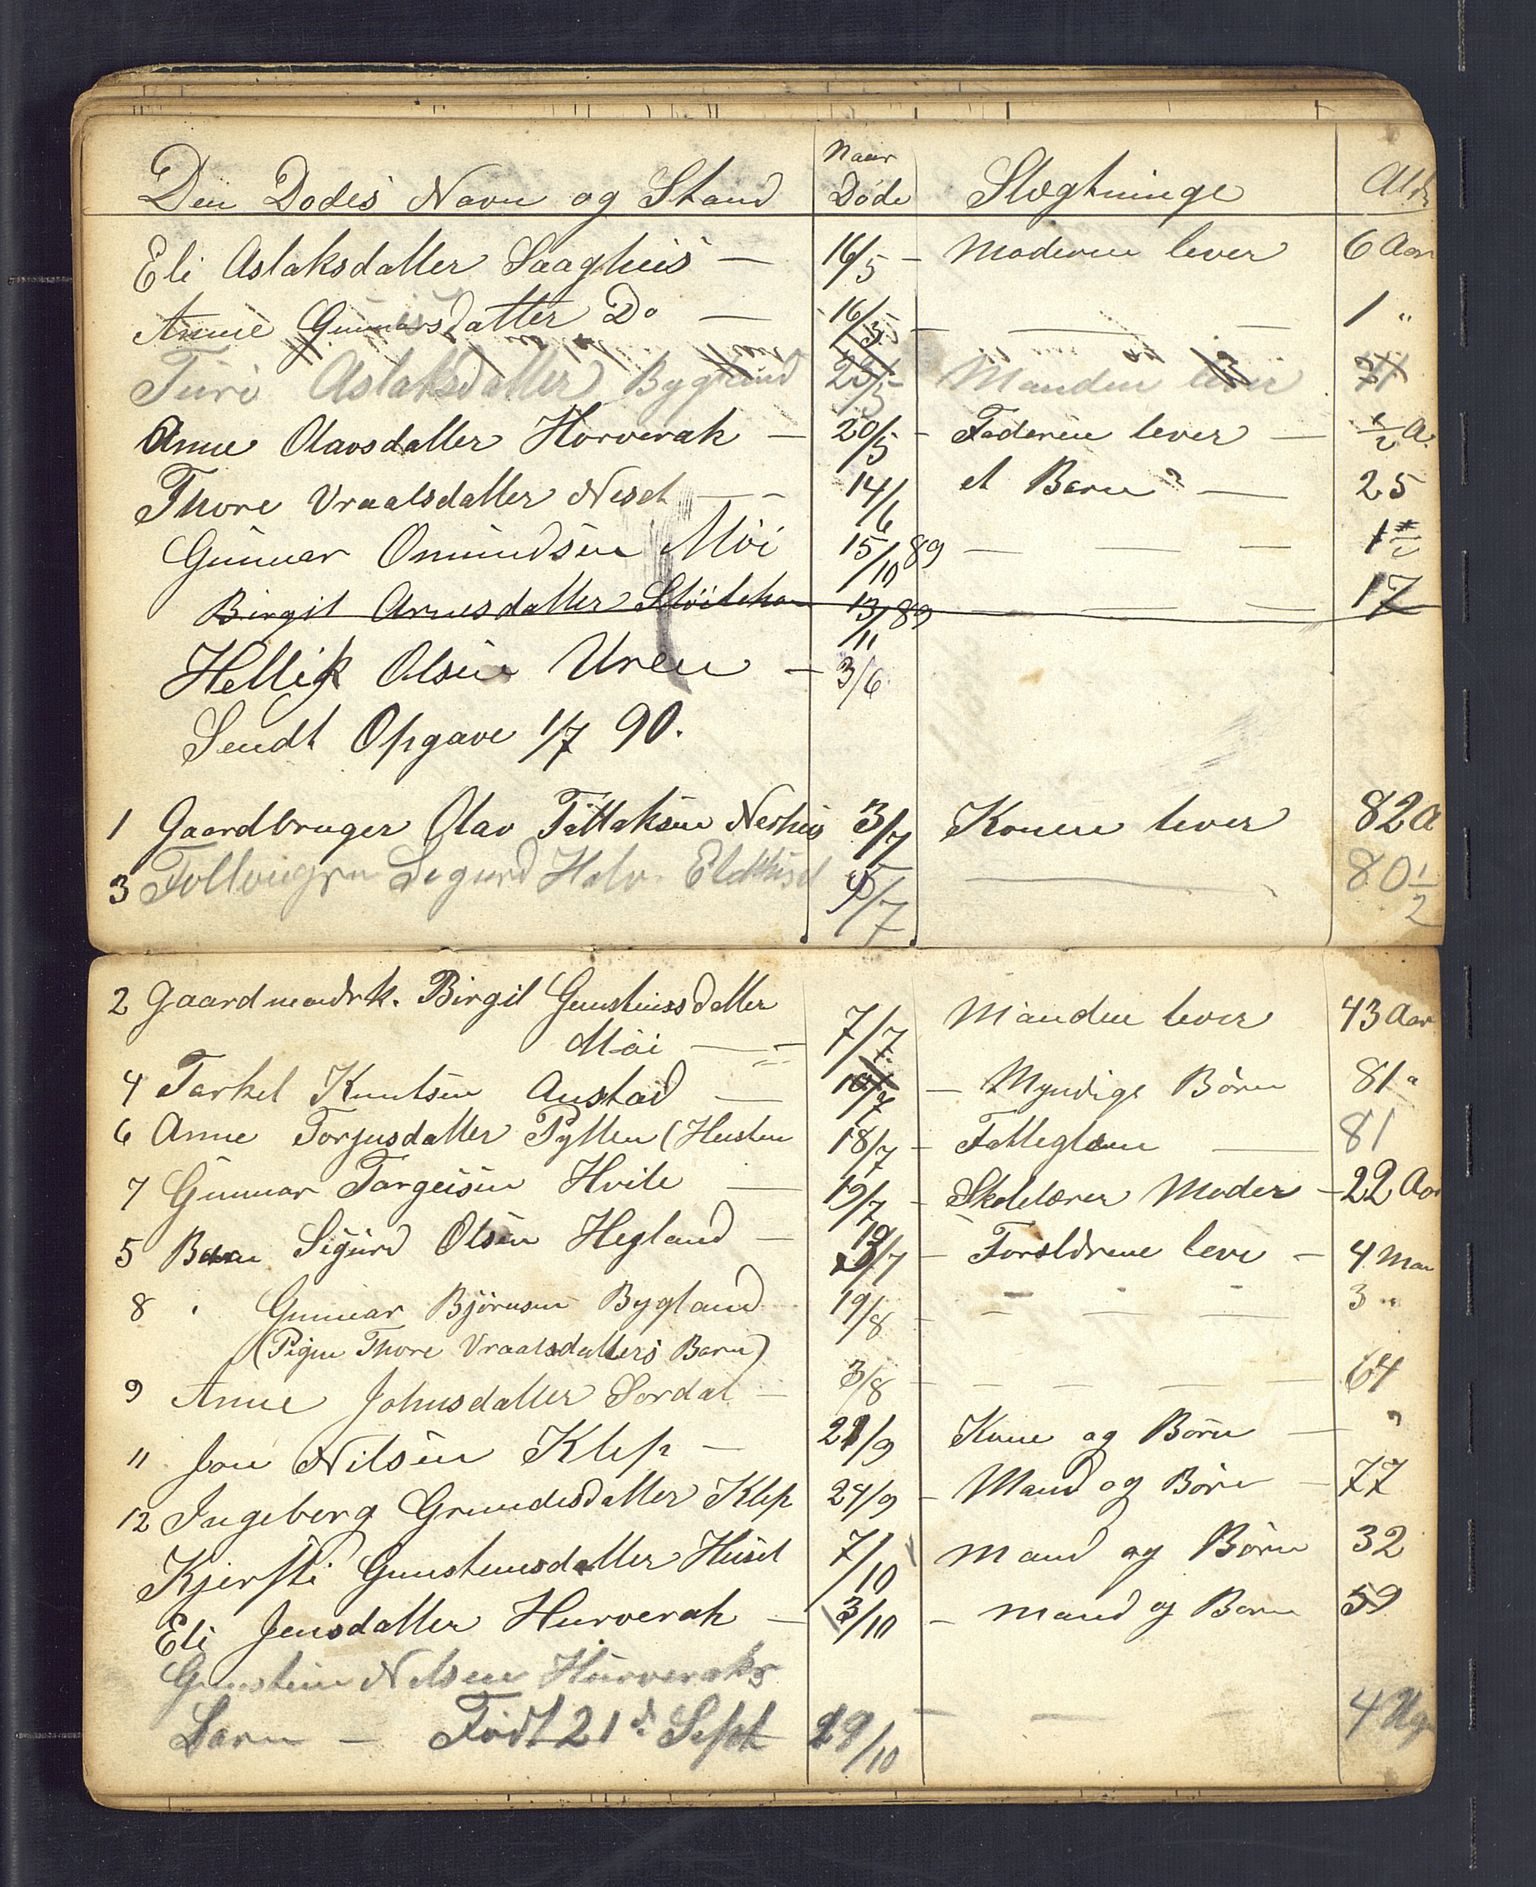 Den Dodes Navn og Stand Naar Døde Slægtninge Ald
Eli Aslaksdatter Saaghus — 16/5 – Moderen lever 6 Aar
Anne Gunnarsdatter Do — 16/5 – — — 1 "
Turi Aslaksdatter Bygland 23/5 Manden lever
Anne Olavsdatter Horverak — 20/5 – Faderen lever — 1/2 A.
Thore Vraalsdatter Neset — 14/6 et Barn? — 25
Gunnar Omundsen Møi 15/10 89 — — — 1
Birgit Arnesdatter 13/11 89 — — — 17
Hellik Olsen Uren — 3/6
Sendt Opgave 1/7 90.
1 Gaardbruger Olav Tallaksen Neshus 3/7 Konen lever 82 A
3 Sigurd Halv. 5/7 — 80 1/2
2 Gaardmandsk. Birgit Gunsteinsdatter
Møi — 7/7 Manden lever 43 Aar
4 Tarkel Knutsen Austad — 10/7 – Myndige Børn 81 "
6 Anne Torjusdatter Pytten (Husten 18/7 – Fattiglem — 81
7 Gunnar Targeisen Hvile — 19/7 – Skolelærer Moder – 22 Aar
5 Barn Sigurd Olsen Hegland — 19/7 – Forældrene leve – 4 Maa
8 " Gunnar Bjørnsen Bygland 19/8 – — — — 3 "
(Pigen Thore Vraalsdatters Barn)
9 Anne Johnsdatter Sordal — 3/8 – — — — — 64
11 Jon Nilsen Klep — 21/9 Kone og Børn — "
12 Ingeborg Gundersdatter Klep 24/9 – Mand og Børn – 77
Kjersti Gunsteinsdatter Huset 7/10 Mand og Børn 32
Eli Jensdatter Hurverak — 3/10 – Mand og Barn 59
Gunstein Nilsen Hurveraks
Barn — Født 21d Sept 29/10 – — — 4 Uger